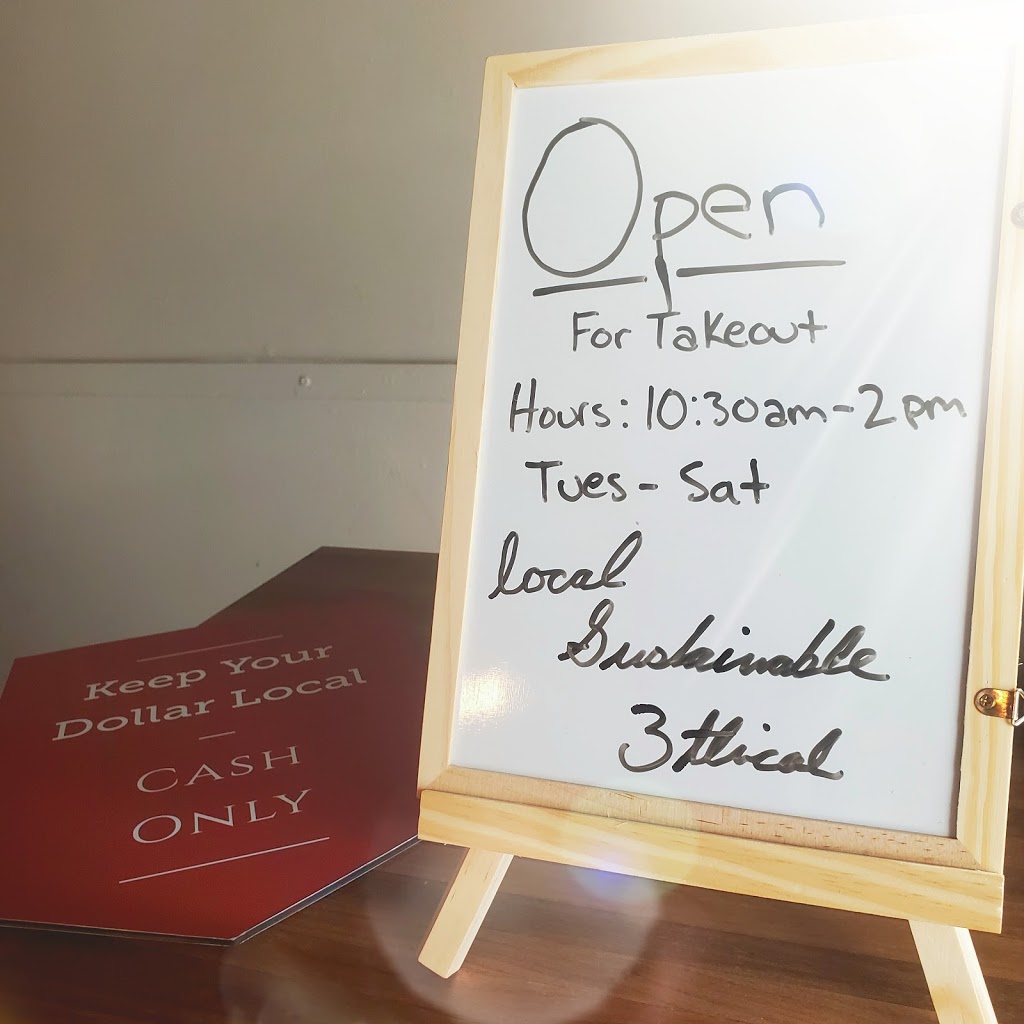 Open
For Takeout
Hours: 10:30am-2pm
Tues - Sat
local
Sustainable
3thical
Keep Your
Dollar Local
CASH
ONLY